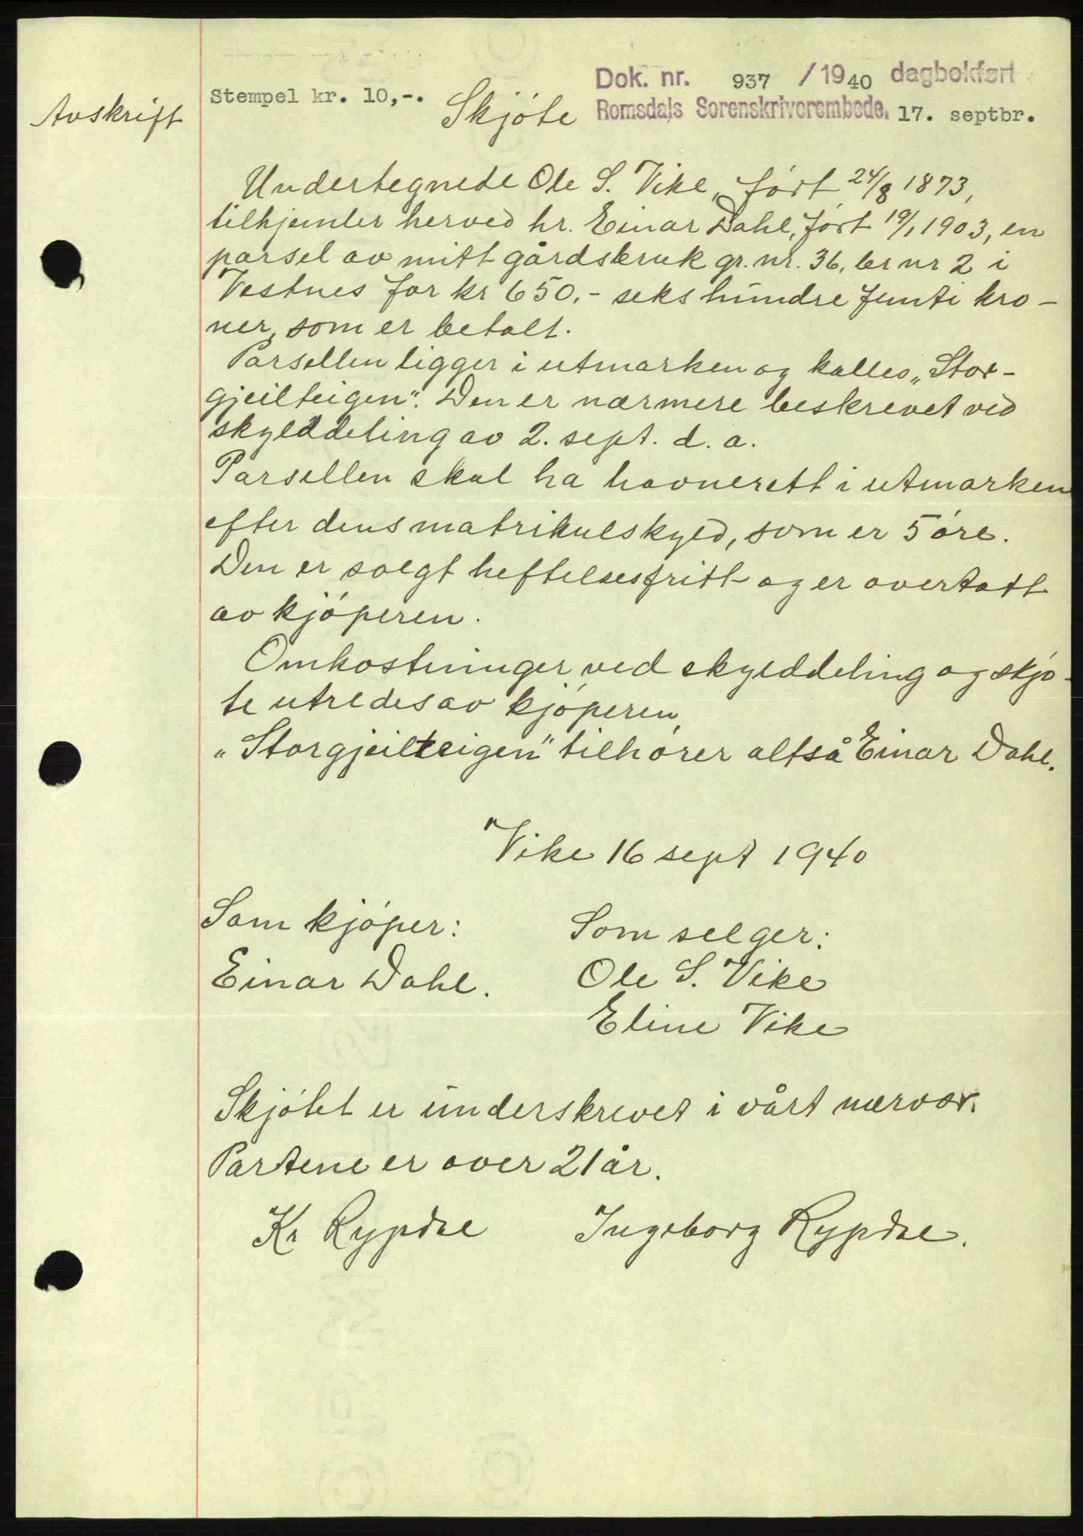 Avskrift
Stempel kr. 10,-.
Skjöte
Dok. nr. 937 /1940 dagbokført
Romsdals Sorenskriverembede. 17. septbr.
Undertegnede Ole S. Vike, født 24/8 1873,
tilhjemler herved hr. Einar Dahl, født 19/1 1903, en
parsel av mitt gårdsbruk gr.nr. 36, br nr 2 i
Vestnes for kr 650,- seks hundre femti kro-
ner, som er betalt.
Parsellen ligger i utmarken og kalles „Stor-
gjeilteigen". Den er nærmere beskrevet ved
skylddeling av 2. sept. d. a.
Parsellen skal ha havnerett i utmarken
efter dens matrikulskyld, som er 5 øre.
Den er solgt heftelsesfritt og er overtatt
av kjöperen.
Omkostninger ved skylddeling og skjö-
te utredes av kjöperen.
„Storgjeilteigen" tilhører altså Einar Dahl.
Vike 16 sept 1940
Som kjöper:
Som selger:
Einar Dahl.
Ole S. Vike
Eline Vike
Skjötet er underskrevet i vårt nærvær.
Partene er over 21 år.
Kr Rypdal
Ingeborg Rypdal.